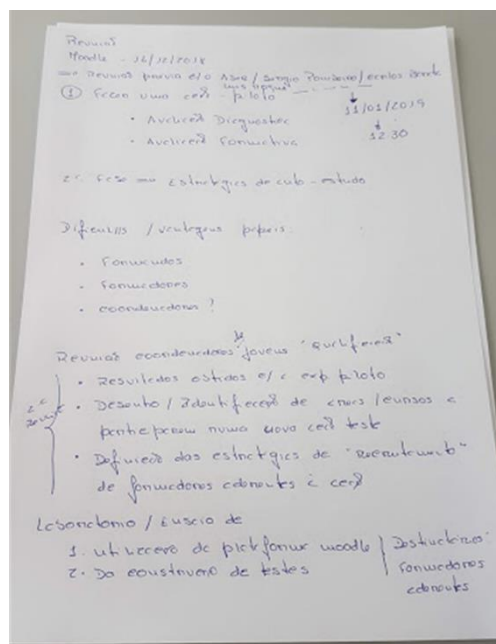 Reunião
Moodle - 14/12/2018
Reunião prévia c/o / Sergio /
① Fazer uma ação piloto 11/01/2019
• Avaliação Diagnostica 12:30
• Avaliação Formativa
2ª Fase Estratégias de auto-estudo
Dificuldades / vantagens papeis:
• Formandos
• Formadores
• coordenadores ?
Reunião coordenadores jovens "qualificação"
• Resultados obtidos c/ a exp piloto
2ª • Desenho / Identificação de areas / cursos a
Reunião participarem numa nova ação teste
• Definição das estrategias de "Recrutamento"
de formadores aderentes à ação
Laboratorio / de
1. utilização da plataforma moodle / Destinatarios:
2. Da construção de testes formadores
aderentes